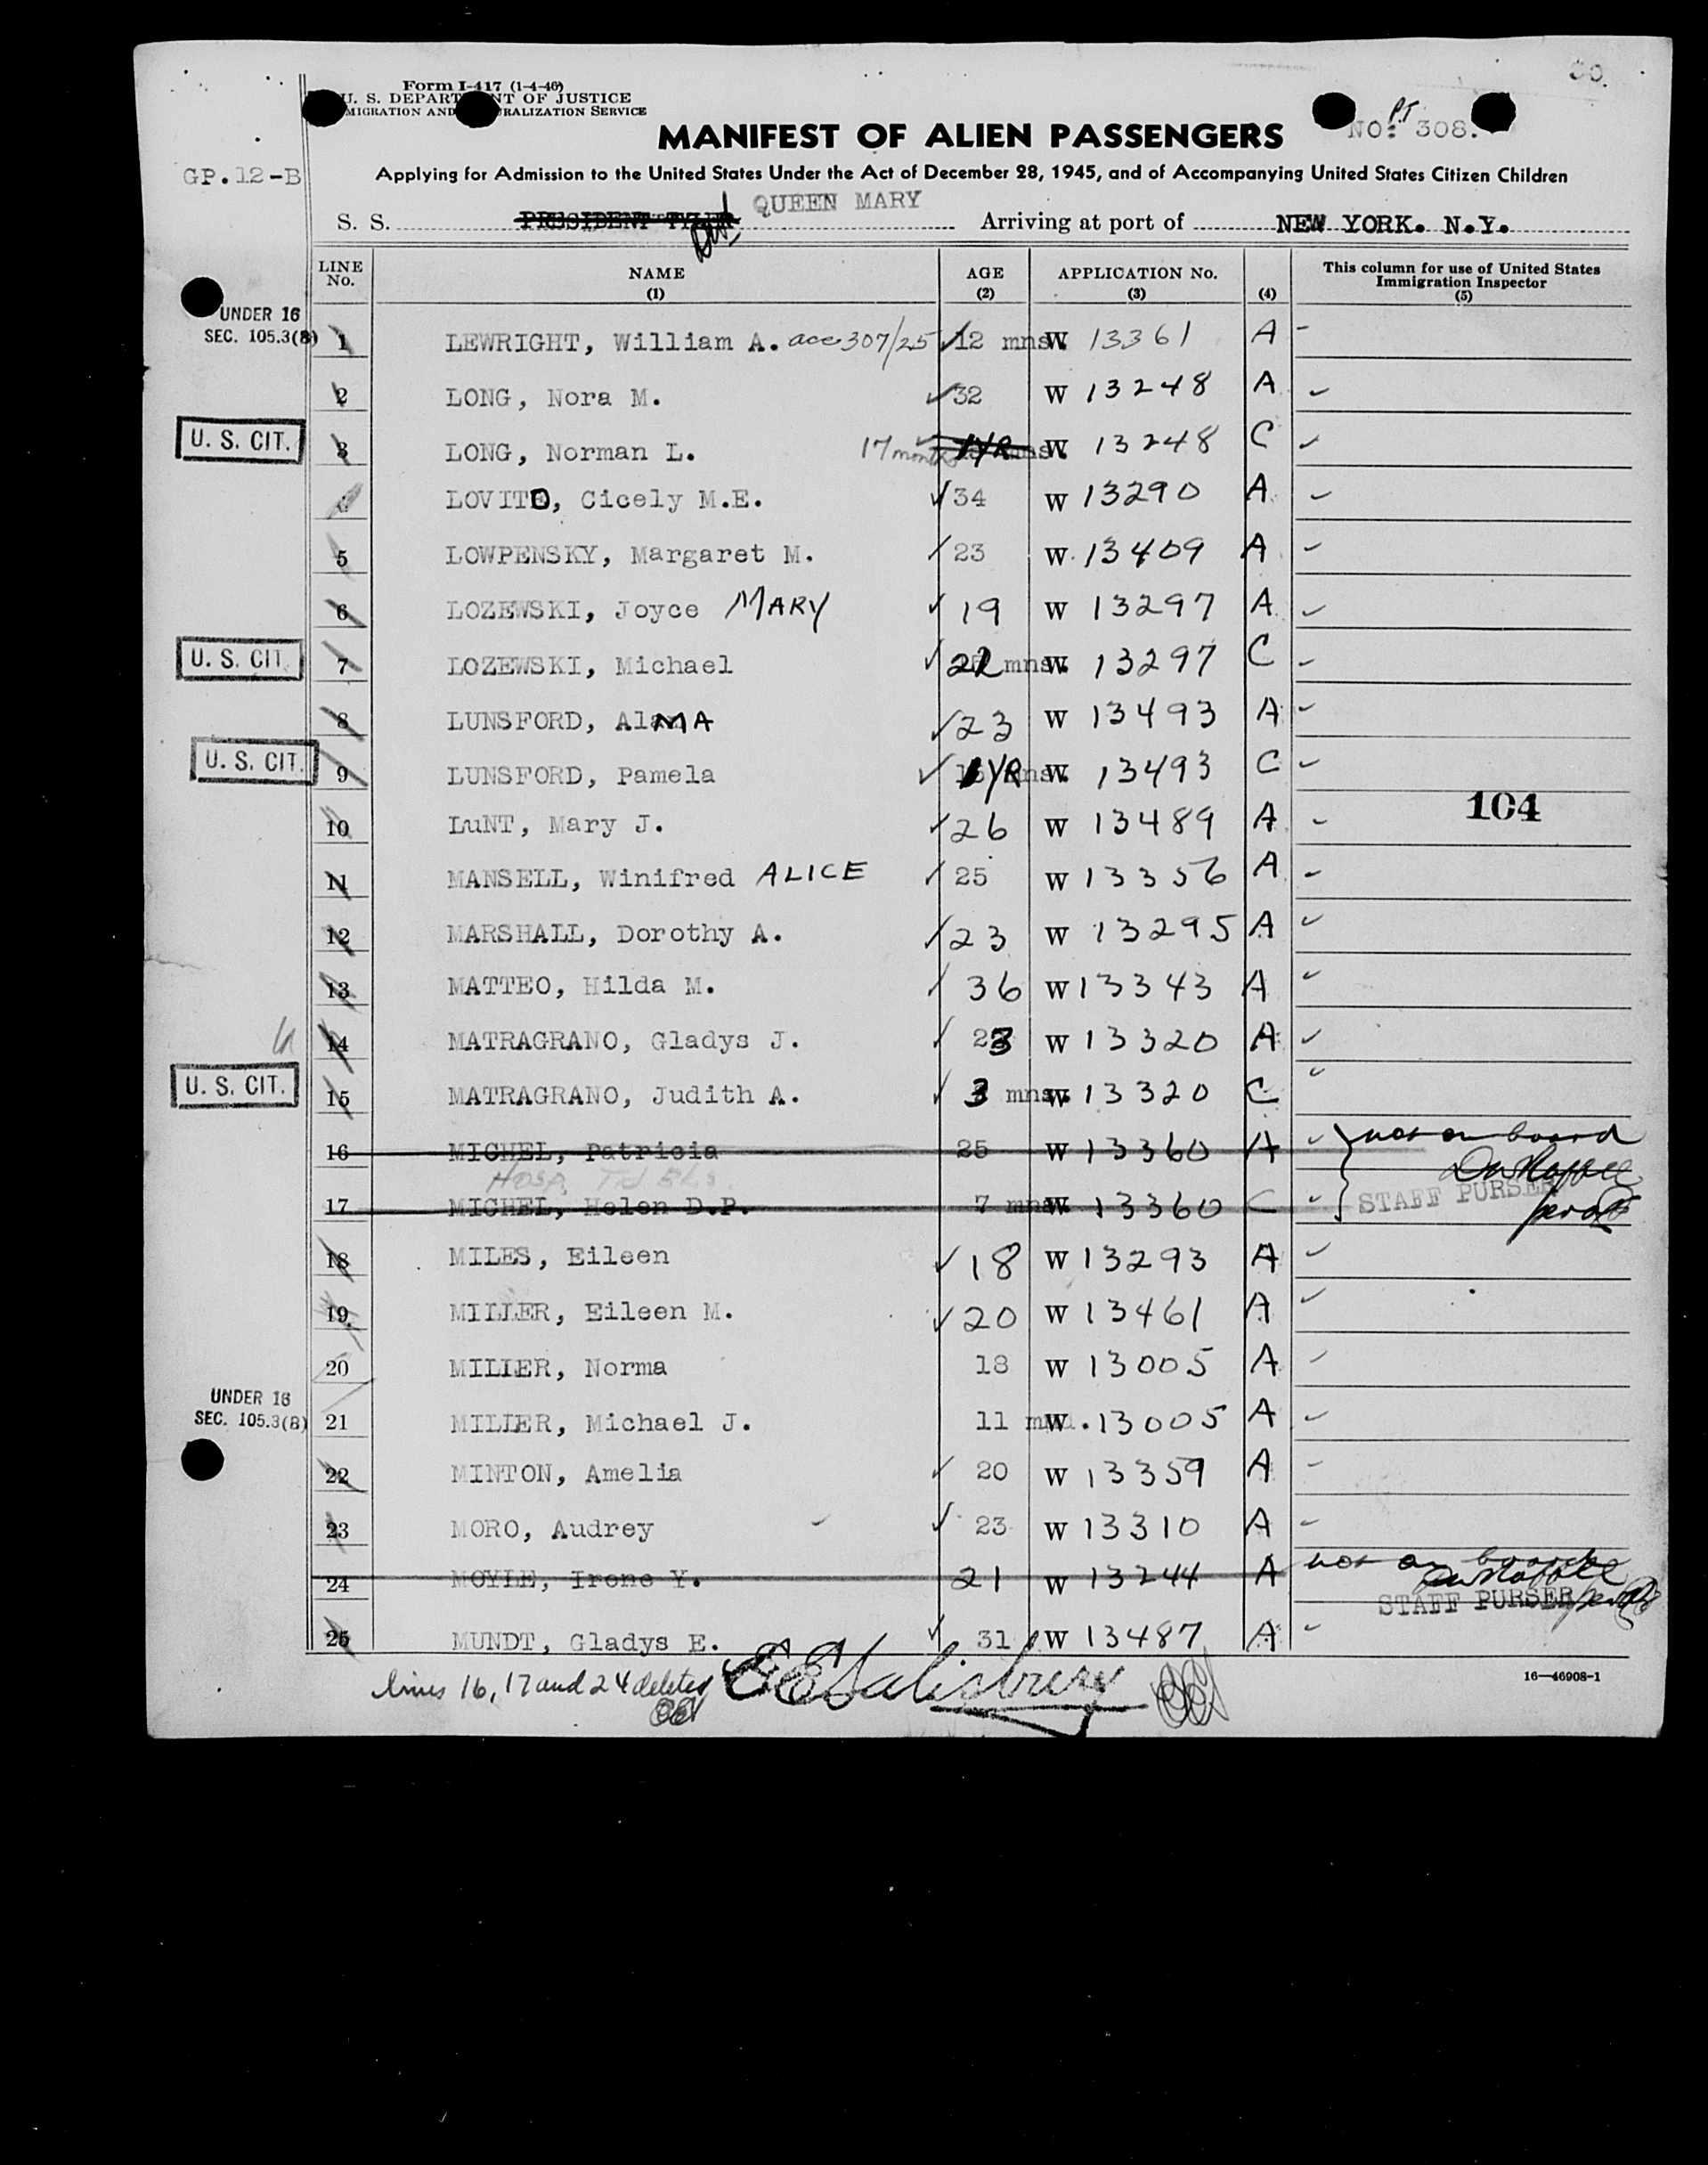 Form I-417 (1-4-46)
U. S. DEPARTMENT OF JUSTICE
IMMIGRATION AND NATURALIZATION SERVICE
30.
PT
NO: 308.
MANIFEST OF ALIEN PASSENGERS
GP.12-B
Applying for Admission to the United States Under the Act of December 28, 1945, and of Accompanying United States Citizen Children
S. S. PRESIDENT TYLER QUEEN MARY Arriving at port of NEW YORK. N.Y.
LINE No. NAME (1) AGE (2) APPLICATION No. (3) (4) This column for use of United States Immigration Inspector (5)
UNDER 16
SEC. 105.3(B) 1 LEWRIGHT, William A. acc 307/25 12 mns. W 13361 A
2 LONG, Nora M. 32 W 13248 A
U. S. CIT. 3 LONG, Norman L. 17 months 1YR W 13248 C
LOVITO, Cicely M.E. 34 W 13290 A
5 LOWPENSKY, Margaret M. 23 W 13409 A
6 LOZEWSKI, Joyce MARY 19 W 13297 A
U. S. CIT. 7 LOZEWSKI, Michael mns. W 13297 C
8 LUNSFORD, AlMA 23 W 13493 A
U. S. CIT. 9 LUNSFORD, Pamela 1YR mns. W 13493 C
104
10 LuNT, Mary J. 26 W 13489 A
11 MANSELL, Winifred ALICE 25 W 13356 A
12 MARSHALL, Dorothy A. 23 W 13295 A
13 MATTEO, Hilda M. 36 W 13343 A
14 MATRAGRANO, Gladys J. 23 W 13320 A
U. S. CIT. 15 MATRAGRANO, Judith A. 3 mns. W 13320 C
16 MICHEL, Patricia 25 W 13360 A not on board
Hosp.
STAFF PURSER
17 MICHEL, Helen D.P. 7 mns. W 13360 C
18 MILES, Eileen 18 W 13293 A
19 MILLER, Eileen M. 20 W 13461 A
20 MILLER, Norma 18 W 13005 A
UNDER 16
SEC. 105.3(B) 21 MILLER, Michael J. 11 W 13005 A
22 MINTON, Amelia 20 W 13359 A
23 MORO, Audrey 23 W 13310 A
24 MOYLE, Irene Y. 21 W 13244 A not on board
STAFF PURSER
25 MUNDT, Gladys E. 31 W 13487 A
lines 16, 17 and 24 deleted EESalisbury
16—46908-1